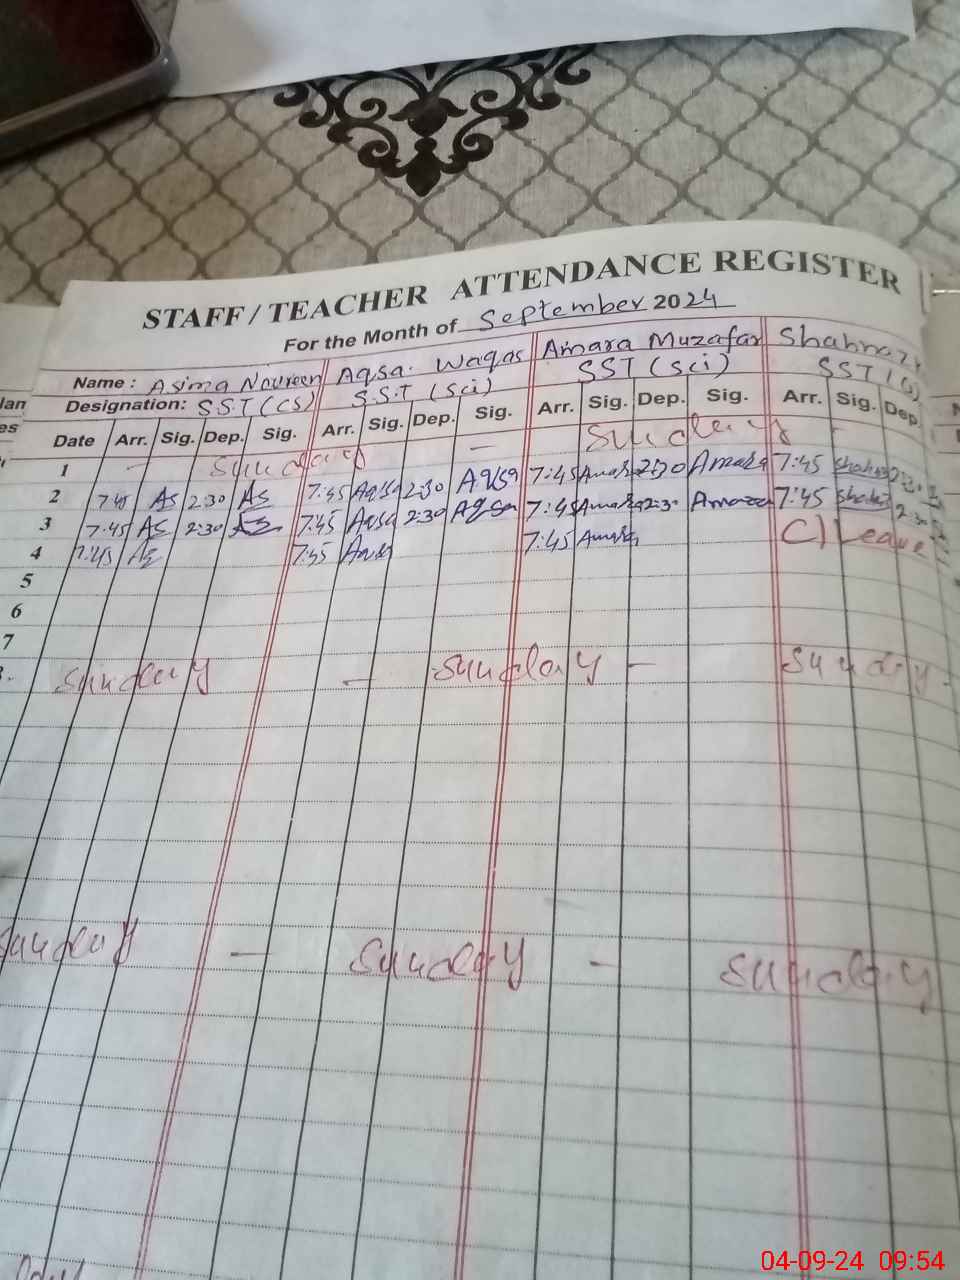 STAFF / TEACHER ATTENDANCE REGISTER
For the Month of September 2024
Name : Asima Naureen Aqsa. Waqas Amara Muzafar Shahnaz
Designation: S.S.T (CS) S.S.T (Sci) SST (Sci) SST
Date Arr. Sig. Dep. Sig. Arr. Sig. Dep. Sig. Arr. Sig. Dep. Sig. Arr. Sig. Dep.
1 - Sunday - Sunday -
2 7:45 As 2:30 As 7:45 Aqsa 2:30 Aqsa 7:45 Amara 2:30 Amara 7:45 Shahnaz 2:30
3 7:45 As 2:30 As 7:45 Aqsa 2:30 Aqsa 7:45 Amara 2:30 Amara 7:45 Shahnaz 2:30
4 7:45 As 7:45 Aqsa 7:45 Amara C/Leave
5
6
7
Sunday - Sunday - Sunday -
Sunday - Sunday - Sunday
04-09-24 09:54